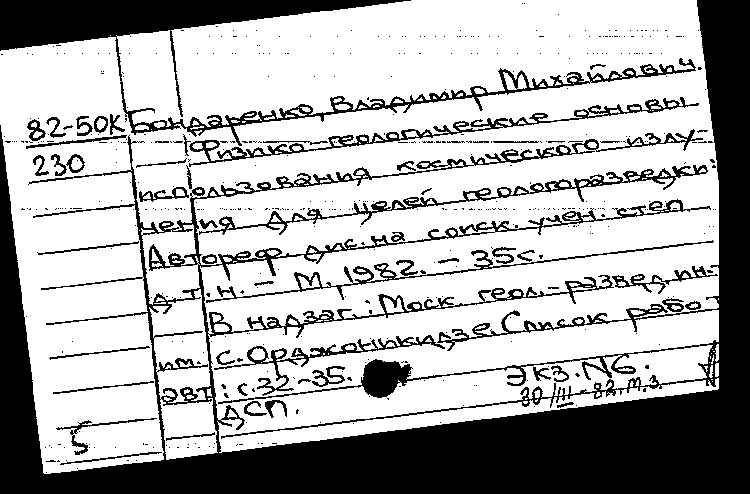 82-50К Бондаренко, Владимир Михайлович.
230 Физико-геологические основы
использования космического излу-
чения для целей геологоразведки:
Автореф. дис. на соиск. учен. степ
д.т.н. - М., 1982. - 35с.
В надзаг.: Моск. геол.-развед ин-т
им. С. Орджоникидзе. Список работ
авт.: с.32-35.
ДСП.
Экз. N6.
30/III-82. м.з.
5